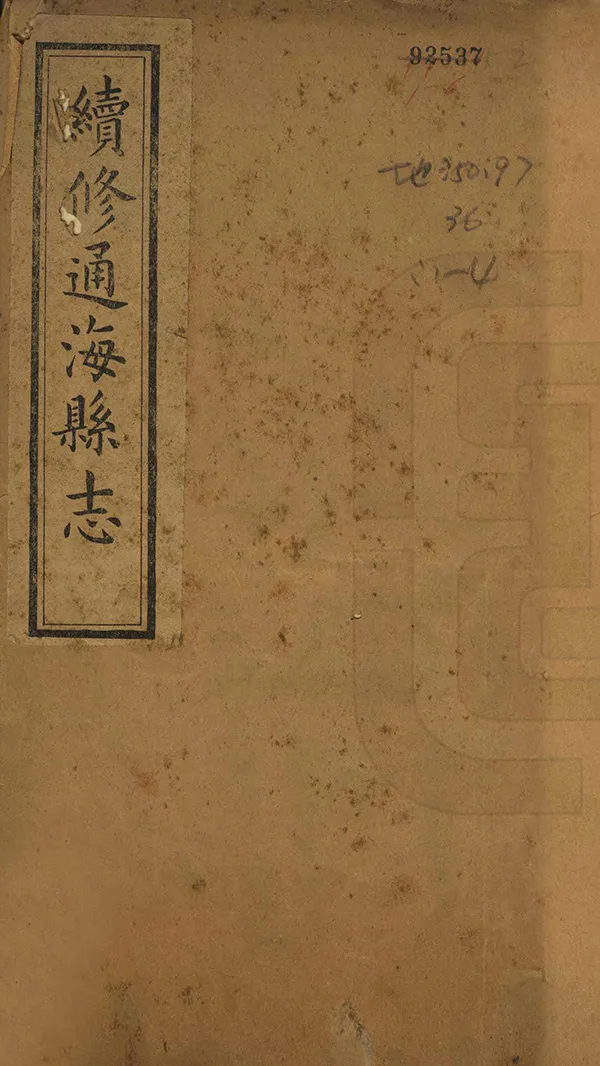 續修通海縣志
92537
地350.97
36
:1-4